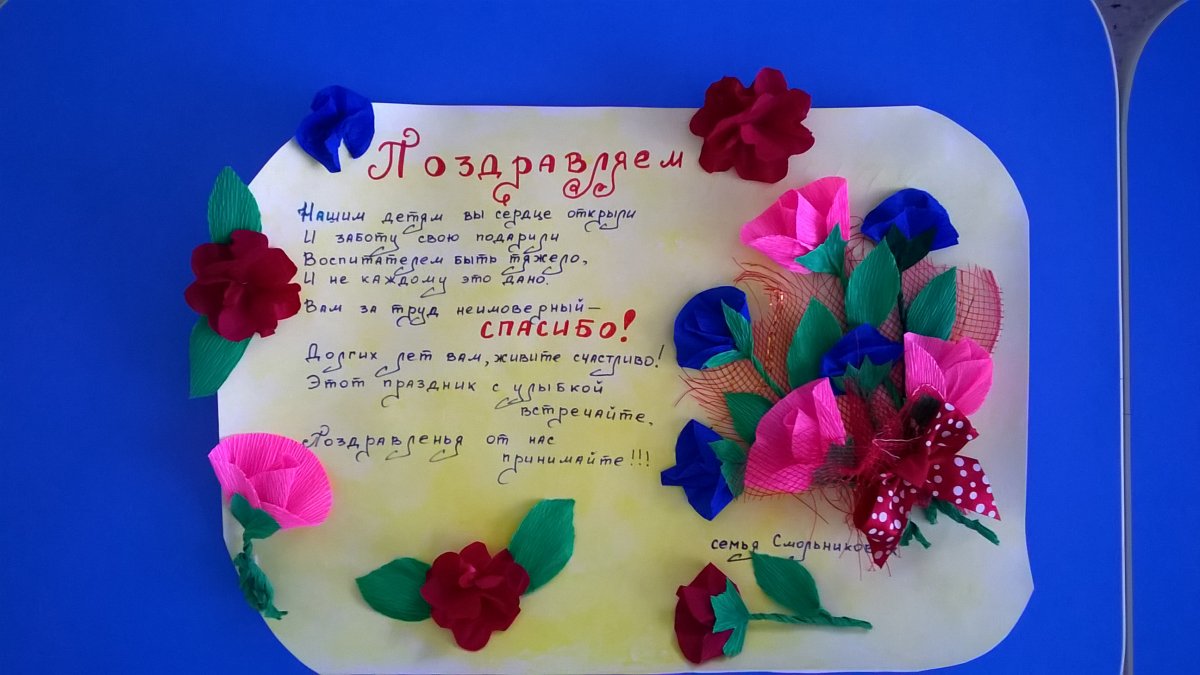 Поздравляем
Нашим детям вы сердце открыли
И заботу свою подарили
Воспитателем быть тяжело,
И не каждому это дано.
Вам за труд неимоверный—
СПАСИБО!
Долгих лет вам, живите счастливо!
Этот праздник с улыбкой
встречайте,
Поздравленья от нас
принимайте!!!
семья